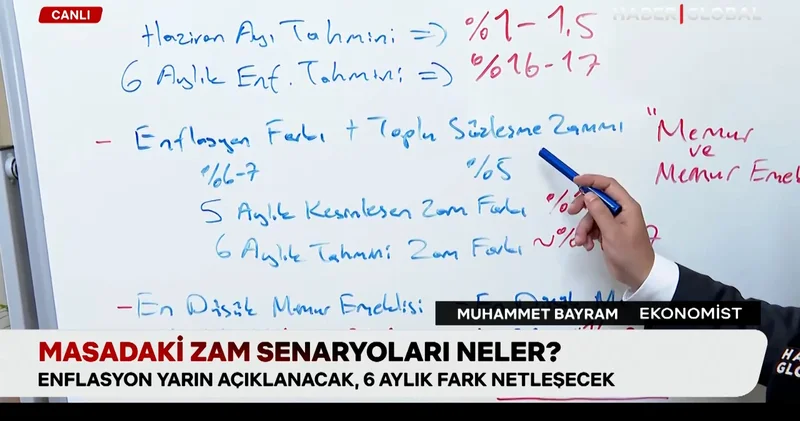 CANLI
HABER GLOBAL
Haziran Ayı Tahmini => %1-1,5
6 Aylık Enf. Tahmini => %16-17
- Enflasyon Farkı + Toplu Sözleşme Zammı "Memur
ve
%6-7 %5 Memur Emek
5 Aylık Kesinleşen Zam Farkı
6 Aylık Tahmini Zam Farkı
- En Düşük Memur Emeklisi
MUHAMMET BAYRAM EKONOMİST
MASADAKİ ZAM SENARYOLARI NELER?
ENFLASYON YARIN AÇIKLANACAK, 6 AYLIK FARK NETLEŞECEK